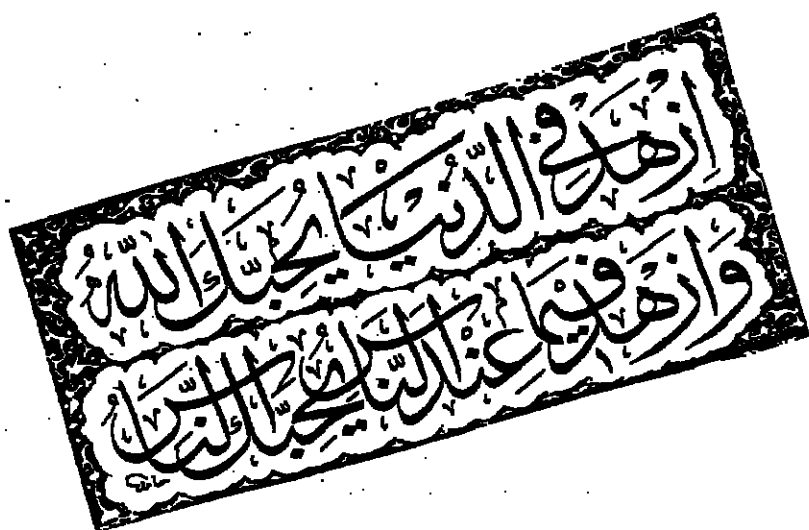 اِزْهَدْ فِي الدُّنْيَا يُحِبَّكَ اللّٰهُ
وَازْهَدْ فِيمَا عِنْدَ النَّاسِ يُحِبَّكَ النَّاسُ